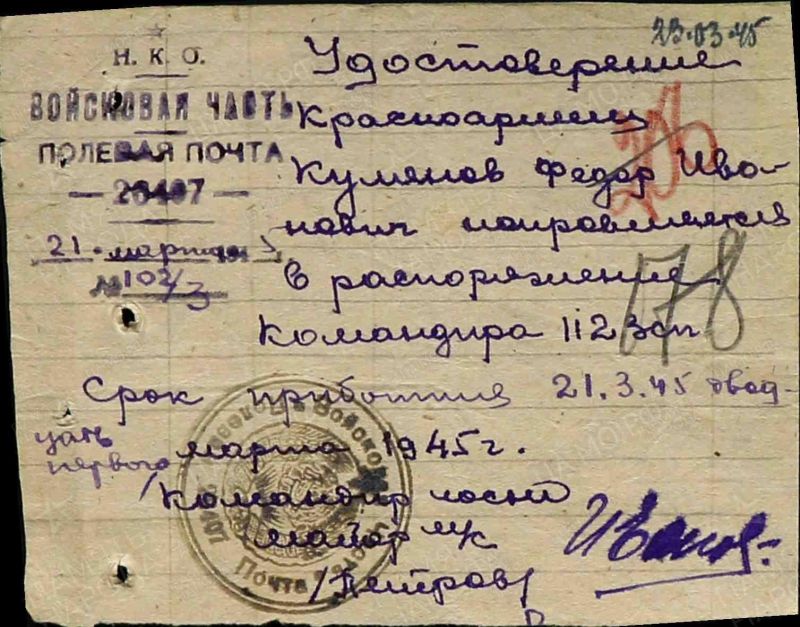 23.03.45
Н. К. О.
ВОЙСКОВАЯ ЧАСТЬ
ПОЛЕВАЯ ПОЧТА
— 26407 —
21 марта 5
№ 102/3
Удостоверение
Красноармеец
Кумянов Федор Ива-
нович направляется
в распоряжение
командира 112 Зсп
178
Срок прибытия 21.3.45 двад-
цать
первого марта 1945 г.
/Командир части
майор м/к
/Петров/
Почта